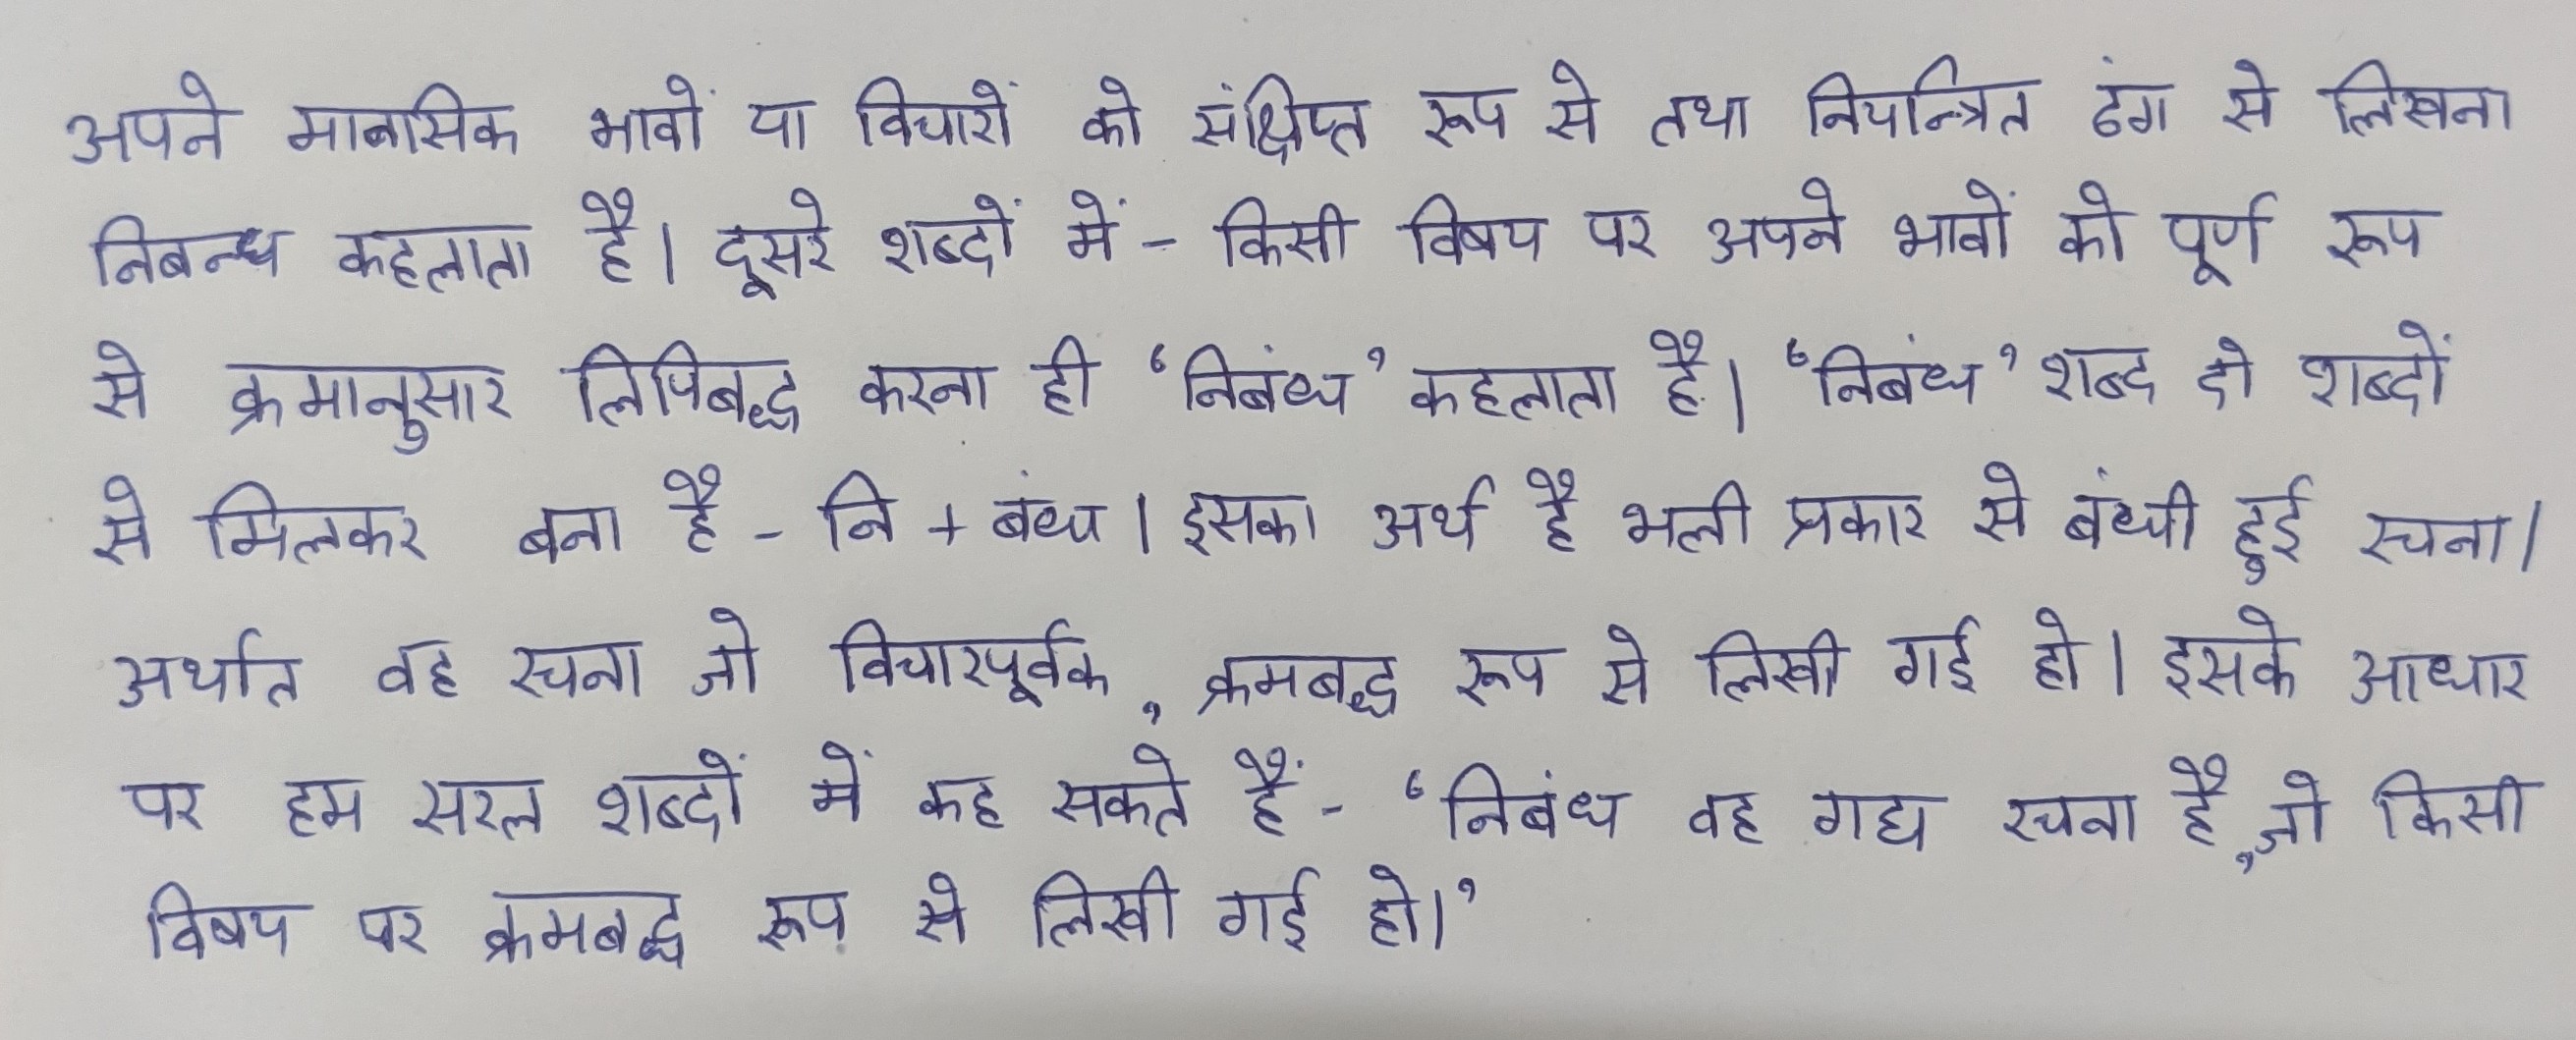 अपने मानसिक भावों या विचारों को संक्षिप्त रूप से तथा नियन्त्रित ढंग से लिखना
निबन्ध कहलाता है। दूसरे शब्दों में - किसी विषय पर अपने भावों को पूर्ण रूप
से क्रमानुसार लिपिबद्ध करना ही ‘निबंध’ कहलाता है। ‘निबंध’ शब्द दो शब्दों
से मिलकर बना है - नि + बंध। इसका अर्थ है भली प्रकार से बंधी हुई रचना।
अर्थात वह रचना जो विचारपूर्वक, क्रमबद्ध रूप से लिखी गई हो। इसके आधार
पर हम सरल शब्दों में कह सकते हैं - ‘निबंध वह गद्य रचना है, जो किसी
विषय पर क्रमबद्ध रूप से लिखी गई हो।’